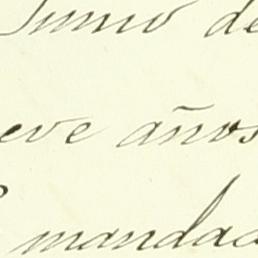 Junio de
eve años
mandad